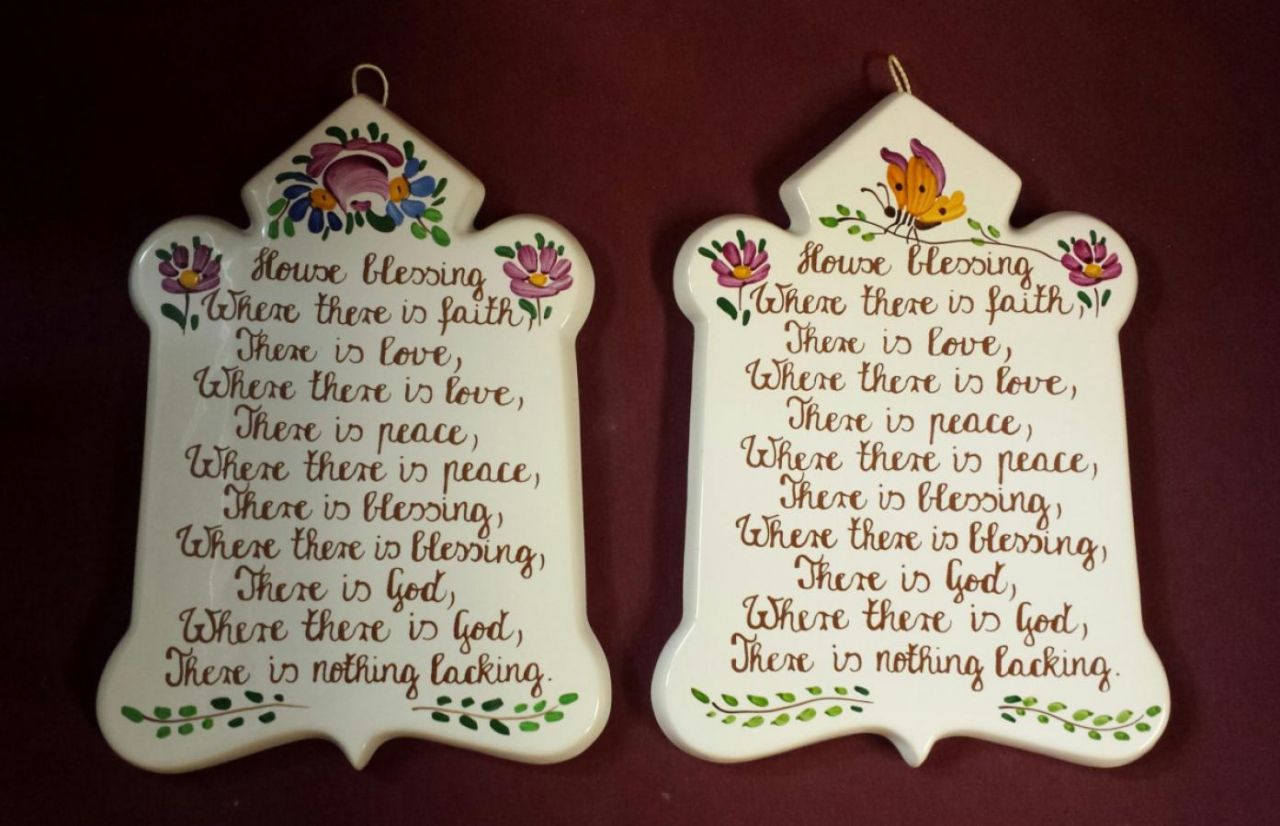 House blessing
Where there is faith,
There is love,
Where there is love,
There is peace,
Where there is peace,
There is blessing,
Where there is blessing,
There is God,
Where there is God,
There is nothing lacking.
House blessing
Where there is faith,
There is love,
Where there is love,
There is peace,
Where there is peace,
There is blessing,
Where there is blessing,
There is God,
Where there is God,
There is nothing lacking.